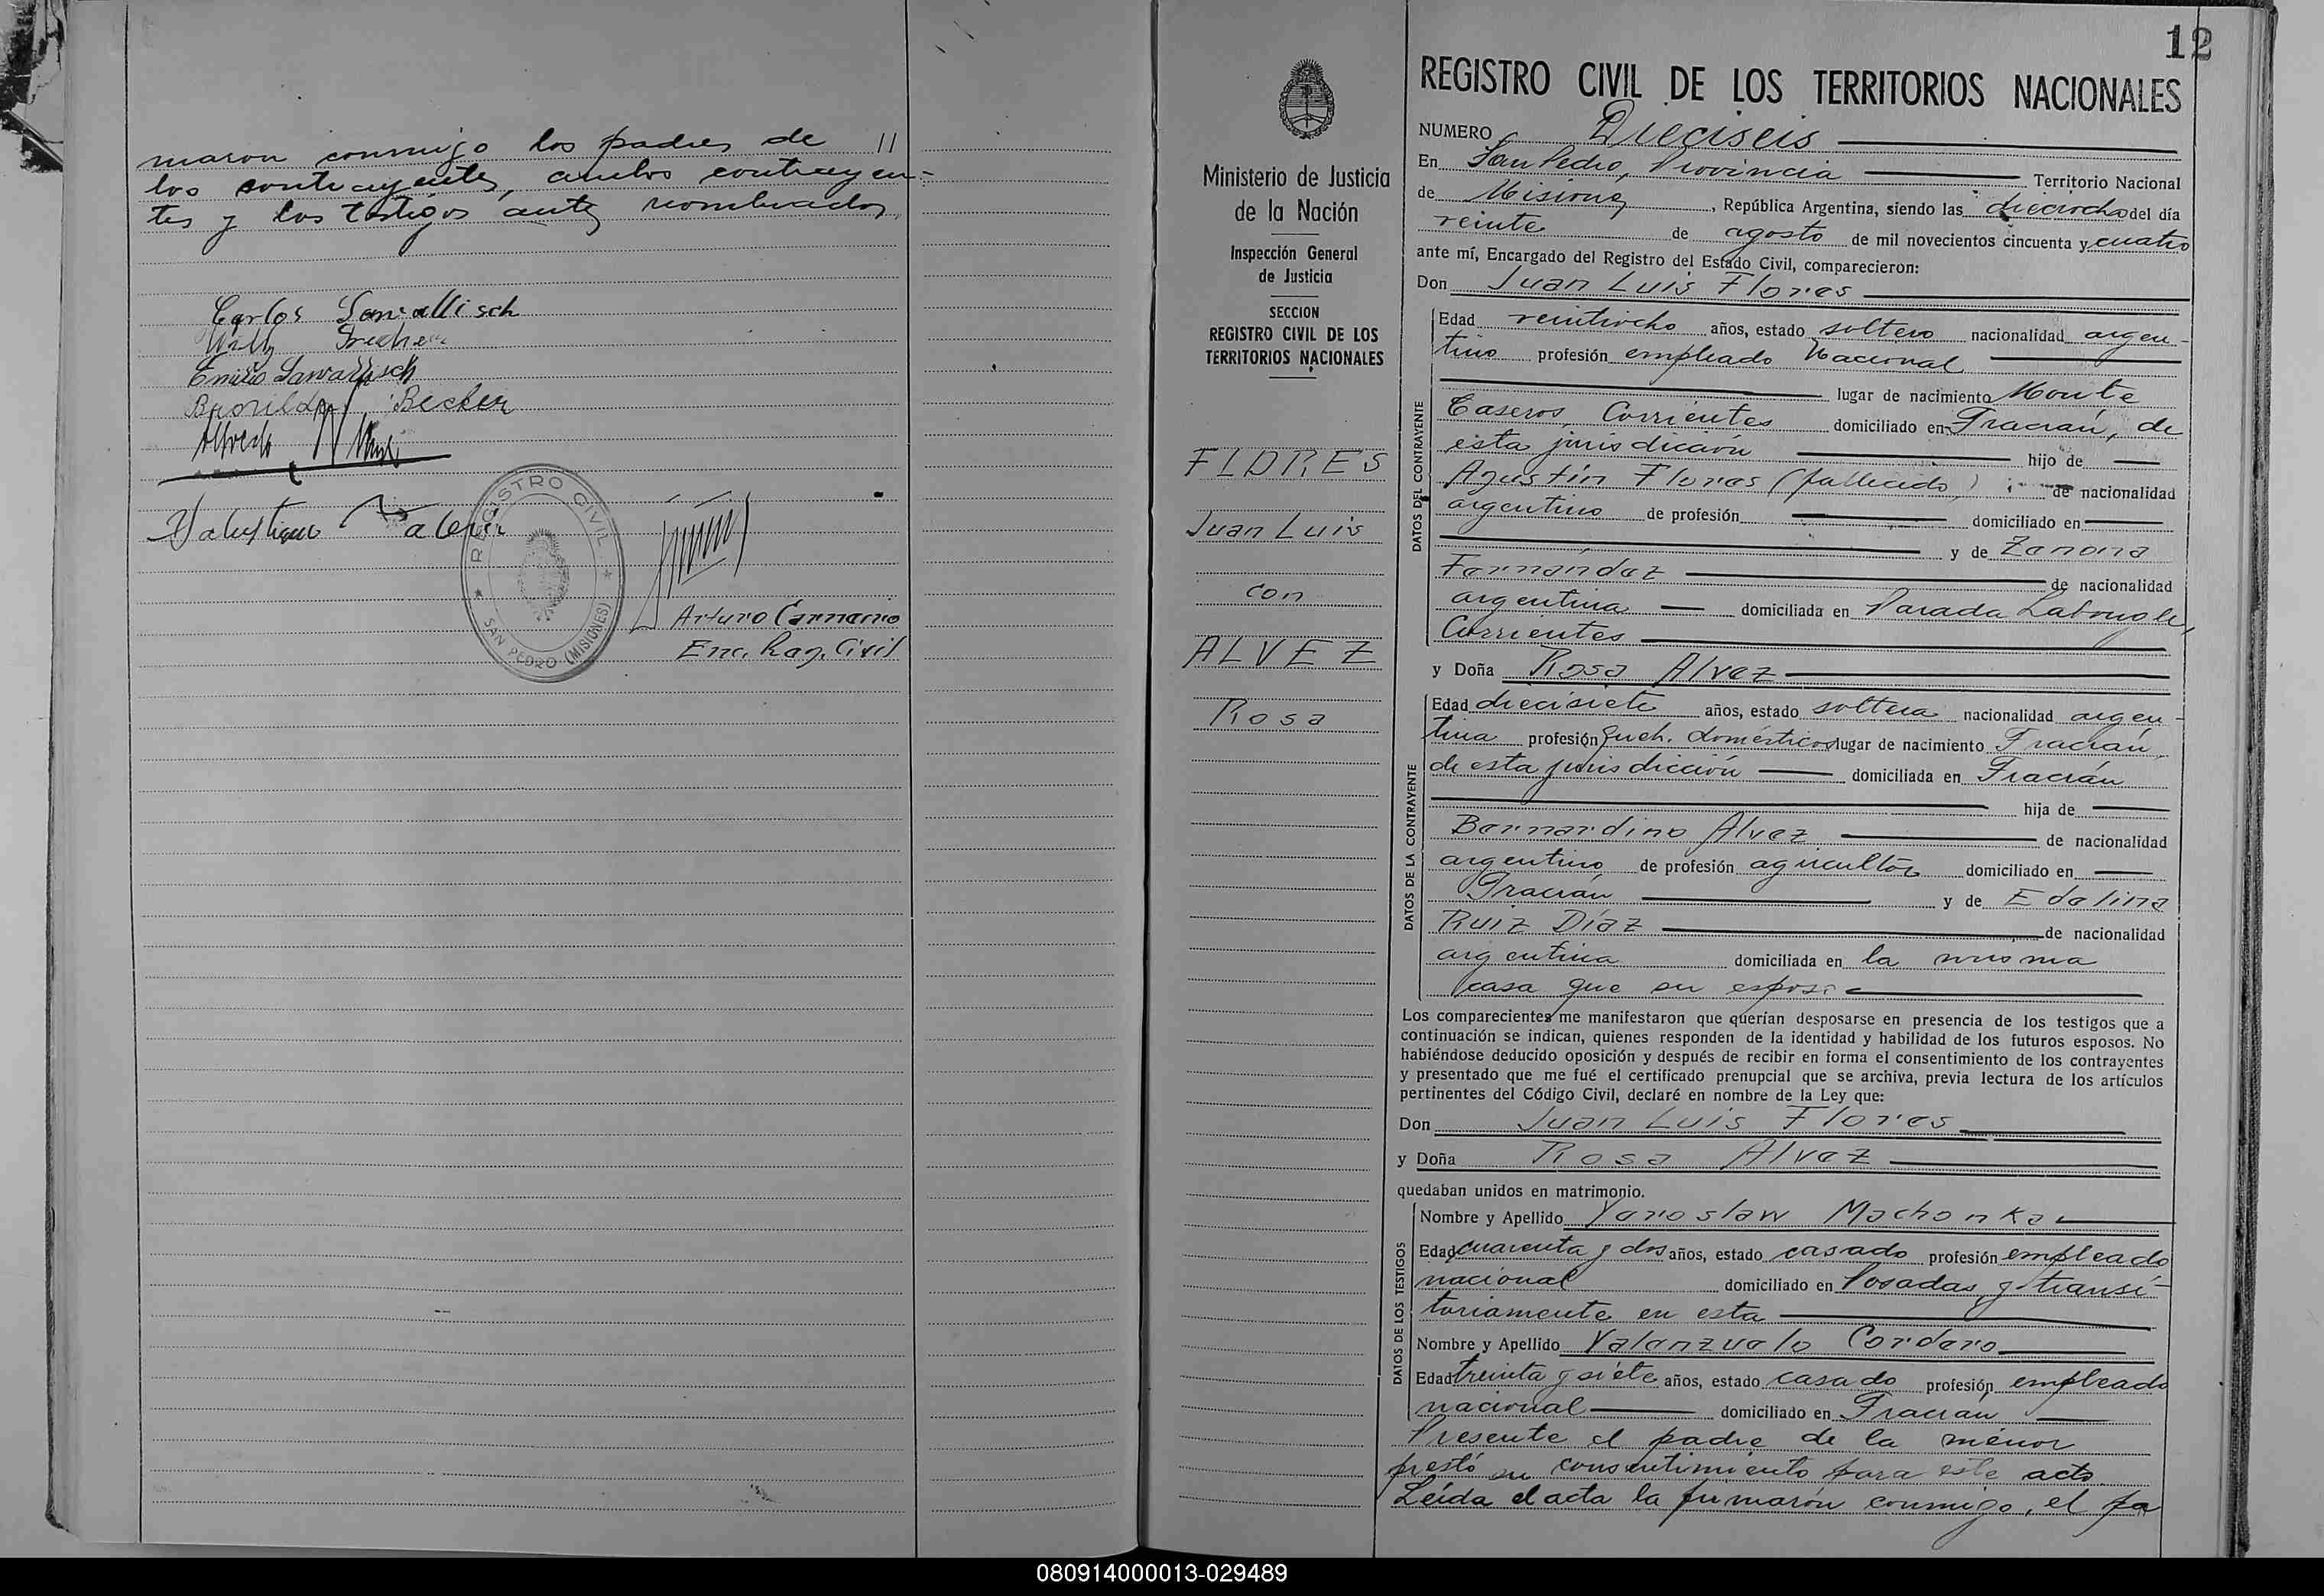 maron conmigo los padres de 11
los contrayentes, ambos contrayen-
tes y los testigos antes nombrados.
Carlos
Willy
Emilio
Becker
Alfredo
REGISTRO CIVIL
SAN PEDRO (MISIONES)
Arturo
Enc. Reg. Civil
12
REGISTRO CIVIL DE LOS TERRITORIOS NACIONALES
Ministerio de Justicia
de la Nación
Inspección General
de Justicia
SECCION
REGISTRO CIVIL DE LOS
TERRITORIOS NACIONALES
FLORES
Juan Luis
con
ALVEZ
Rosa
NUMERO Dieciseis
En San Pedro, Provincia Territorio Nacional
de Misiones, República Argentina, siendo las dieciocho del día
veinte de agosto de mil novecientos cincuenta y cuatro
ante mí, Encargado del Registro del Estado Civil, comparecieron:
Don Juan Luis Flores
DATOS DEL CONTRAYENTE
Edad veintiocho años, estado soltero nacionalidad argen-
tino profesión empleado Nacional
lugar de nacimiento Monte
Caseros, Corrientes domiciliado en Fracrán, de
esta jurisdicción hijo de
Agustín Flores (fallecido) de nacionalidad
argentino de profesión domiciliado en
y de Zenona
Fernández de nacionalidad
argentina domiciliada en Parada Labougle,
Corrientes
y Doña Rosa Alvez
DATOS DE LA CONTRAYENTE
Edad diecisiete años, estado soltera nacionalidad argen-
tina profesión Queh. domésticos lugar de nacimiento Fracrán
de esta jurisdicción domiciliada en Fracrán
hija de
Bernardino Alvez de nacionalidad
argentino de profesión agricultor domiciliado en
Fracrán y de Edolina
Ruiz Díaz de nacionalidad
argentina domiciliada en la misma
casa que su esposo
Los comparecientes me manifestaron que querían desposarse en presencia de los testigos que a
continuación se indican, quienes responden de la identidad y habilidad de los futuros esposos. No
habiéndose deducido oposición y después de recibir en forma el consentimiento de los contrayentes
y presentado que me fué el certificado prenupcial que se archiva, previa lectura de los artículos
pertinentes del Código Civil, declaré en nombre de la Ley que:
Don Juan Luis Flores
y Doña Rosa Alvez
quedaban unidos en matrimonio.
DATOS DE LOS TESTIGOS
Nombre y Apellido Yaroslaw Machonka
Edad cuarenta y dos años, estado casado profesión empleado
nacional domiciliado en Posadas y transi-
toriamente en esta
Nombre y Apellido Valenzuelo Cordero
Edad treinta y siete años, estado casado profesión empleado
nacional domiciliado en Fracran
Presente el padre de la menor
prestó su consentimiento para este acto
Leída el acta la firmaron conmigo, el pa
080914000013-029489